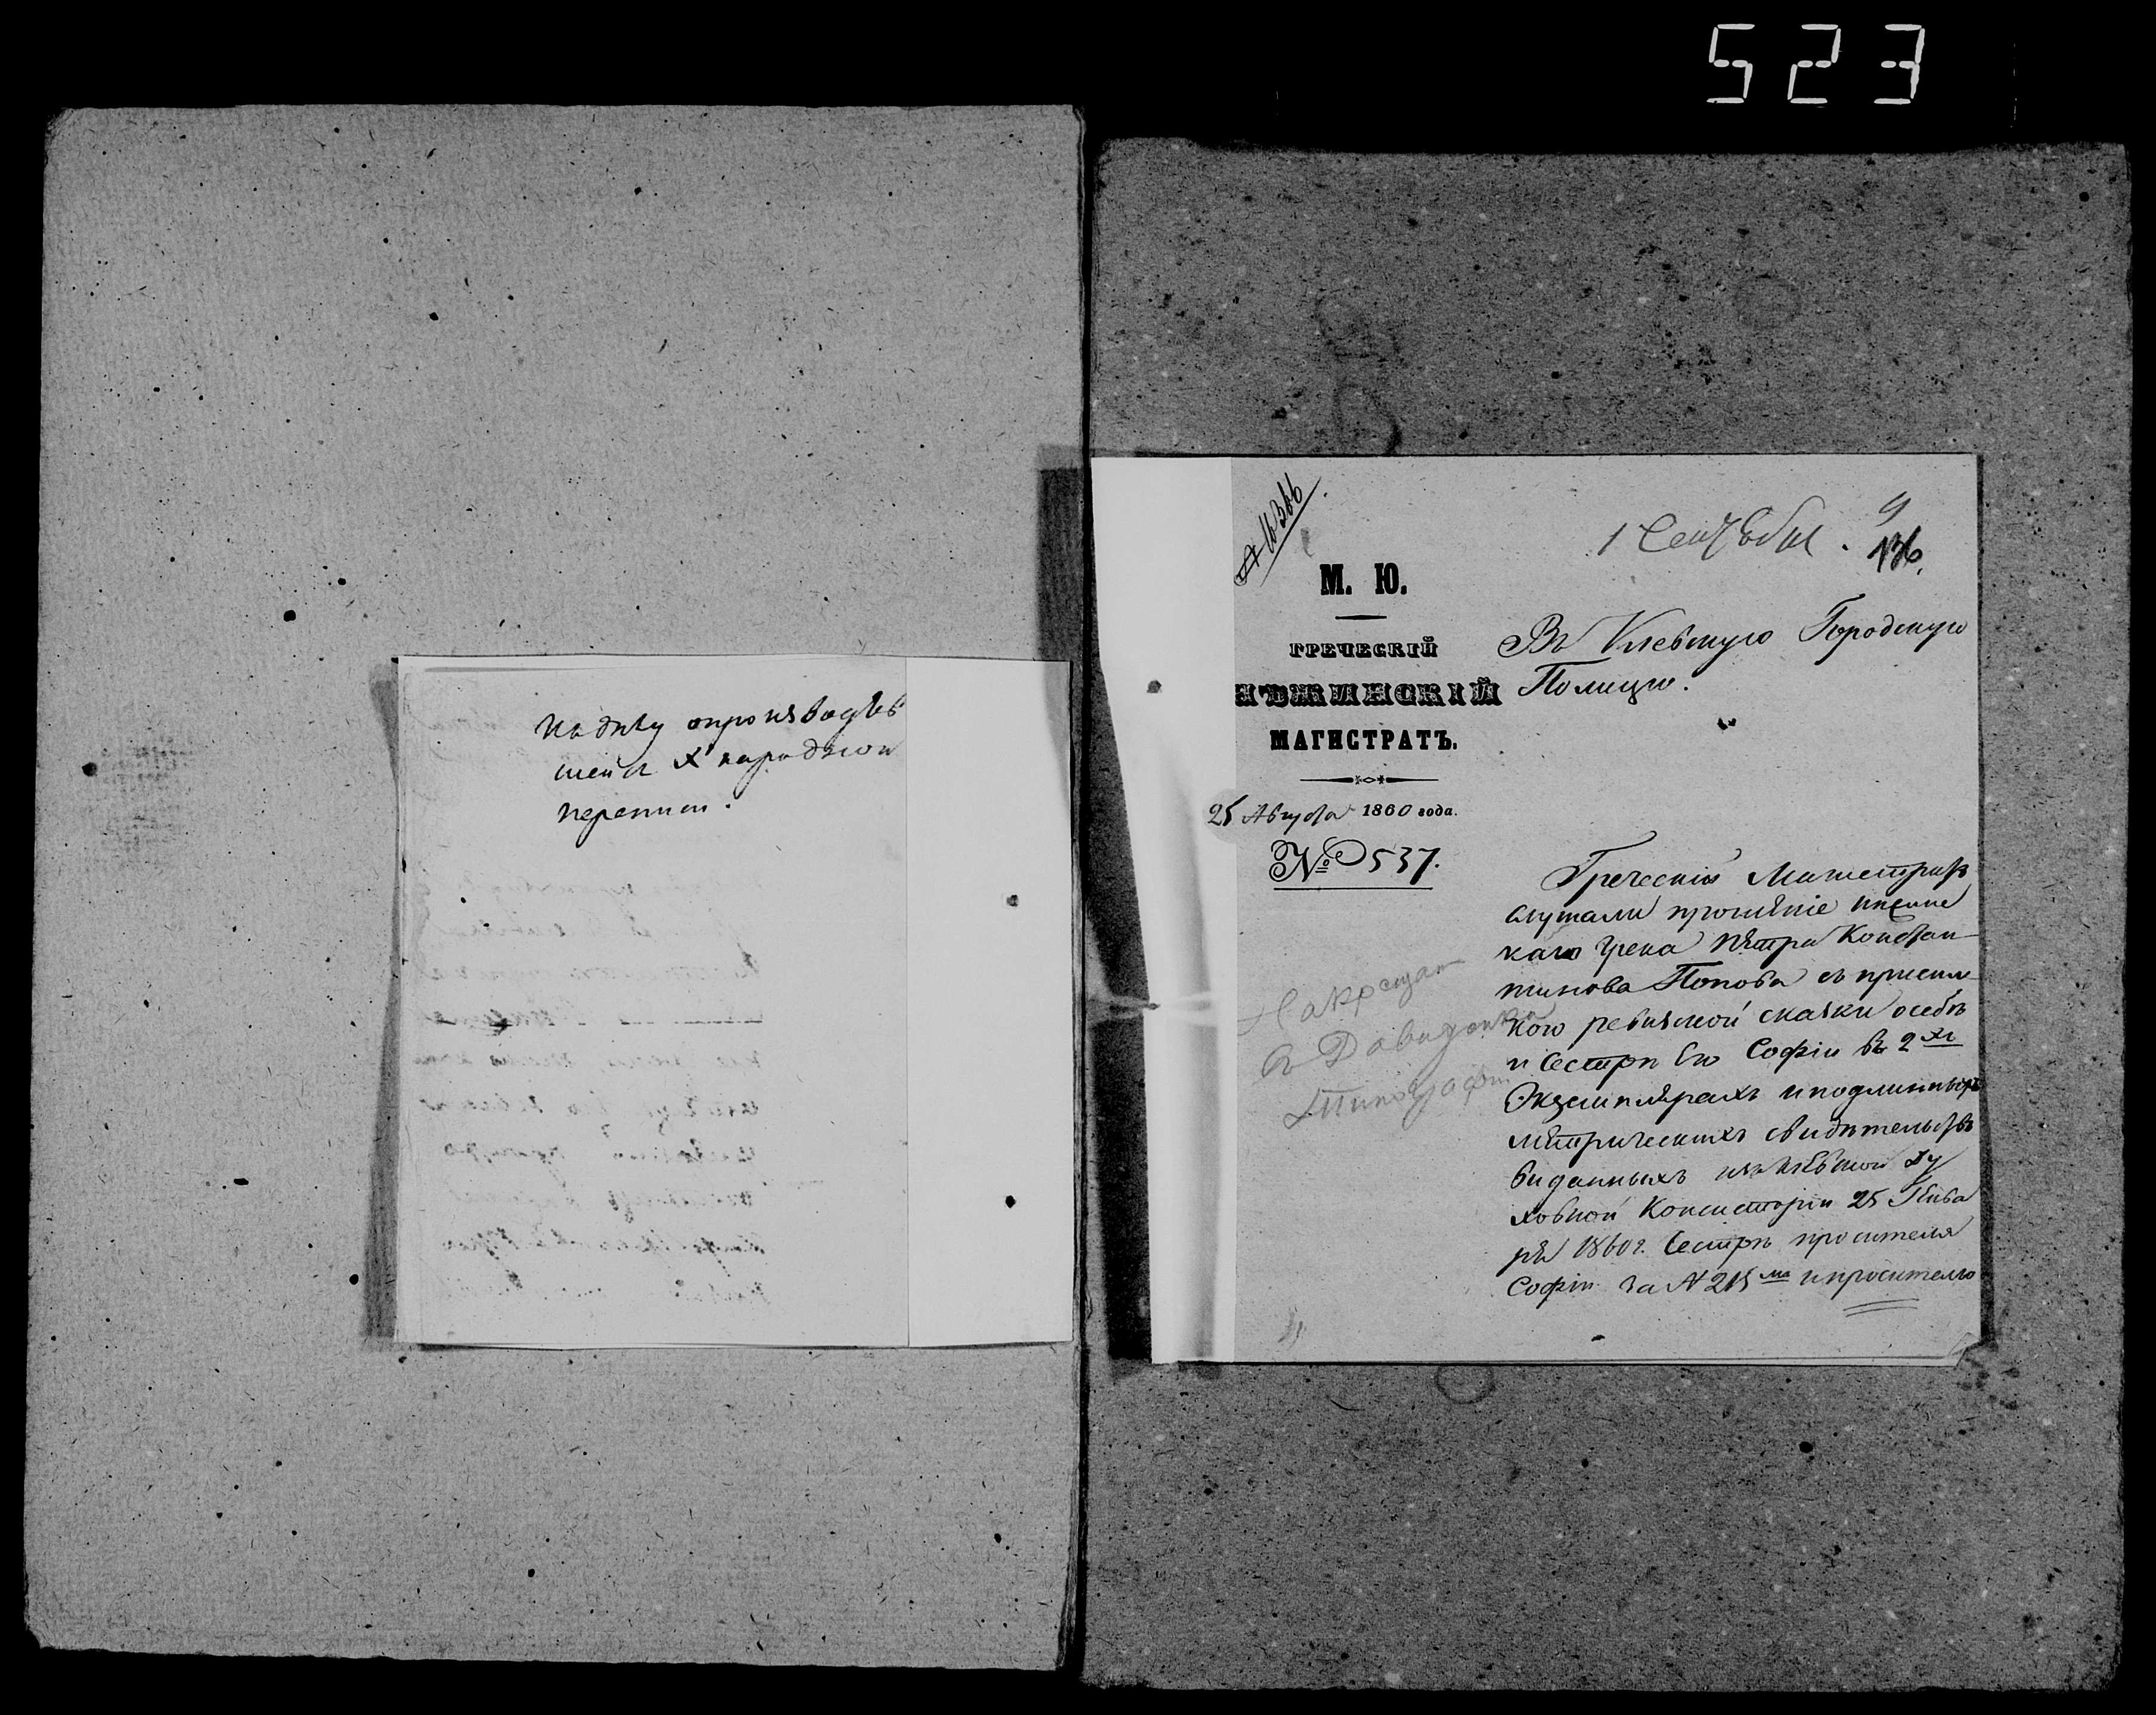 523
къ дѣлу опроизводѣв
шейся X народной
переписи.
1 Сентября. 9
136.
М. Ю.
ГРЕЧЕСКІЙ
НѢЖИНСКІЙ
МАГИСТРАТЪ.
25 Августа 1860 года.
№ 537.
Въ Кіевскую Городскую
Полицію.
Греческій Магистратъ
слушали прошеніе нѣжинс
каго Грека Пѣтра Констан-
тинова Попова съ
кою ревизской сказки о себѣ
и Сестрѣ Его Софіи въ 2хъ
Экземплярахъ и подлинныхъ
мѣтрическихъ свидѣтельствъ
виданныхъ изъ Кіевской Ду
ховной Консисторіи 25 Генва
ря 1860 г. Сестрѣ просителя
Софіи за № 215мъ и просителю